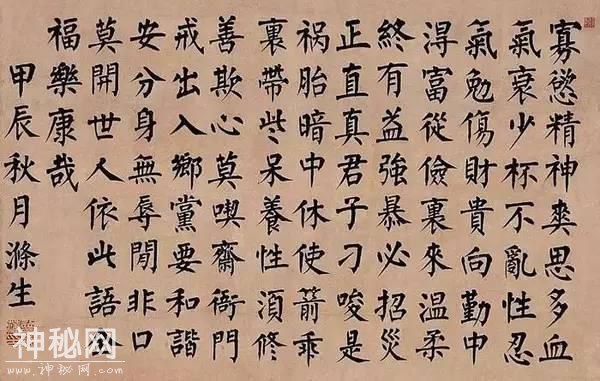 寡慾精神爽思多血
氣衰少杯不亂性忍
氣勉傷財貴向勤中
淂富從儉裏來温柔
終有益強暴必招災
正直真君子刁唆是
祸胎暗中休使箭乖
裏帶些呆養性湏修
善欺心莫喫齋衙門
戒出入鄉黨要和諧
安分身無辱閒非口
莫開世人依此語
福樂康哉
甲辰秋月滌生
神秘网
www.神秘网.com